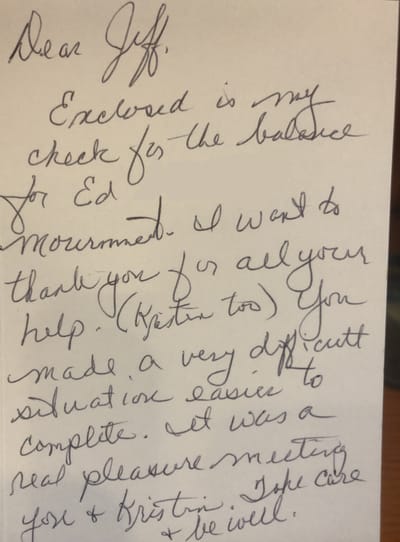 Dear Jeff,
Enclosed is my
check for the balance
for Ed
I want to
thank you for all your
help. (Kristin too) You
made a very difficult
situation easier to
complete. It was a
real pleasure meeting
you & Kristin. Take care
& be well.